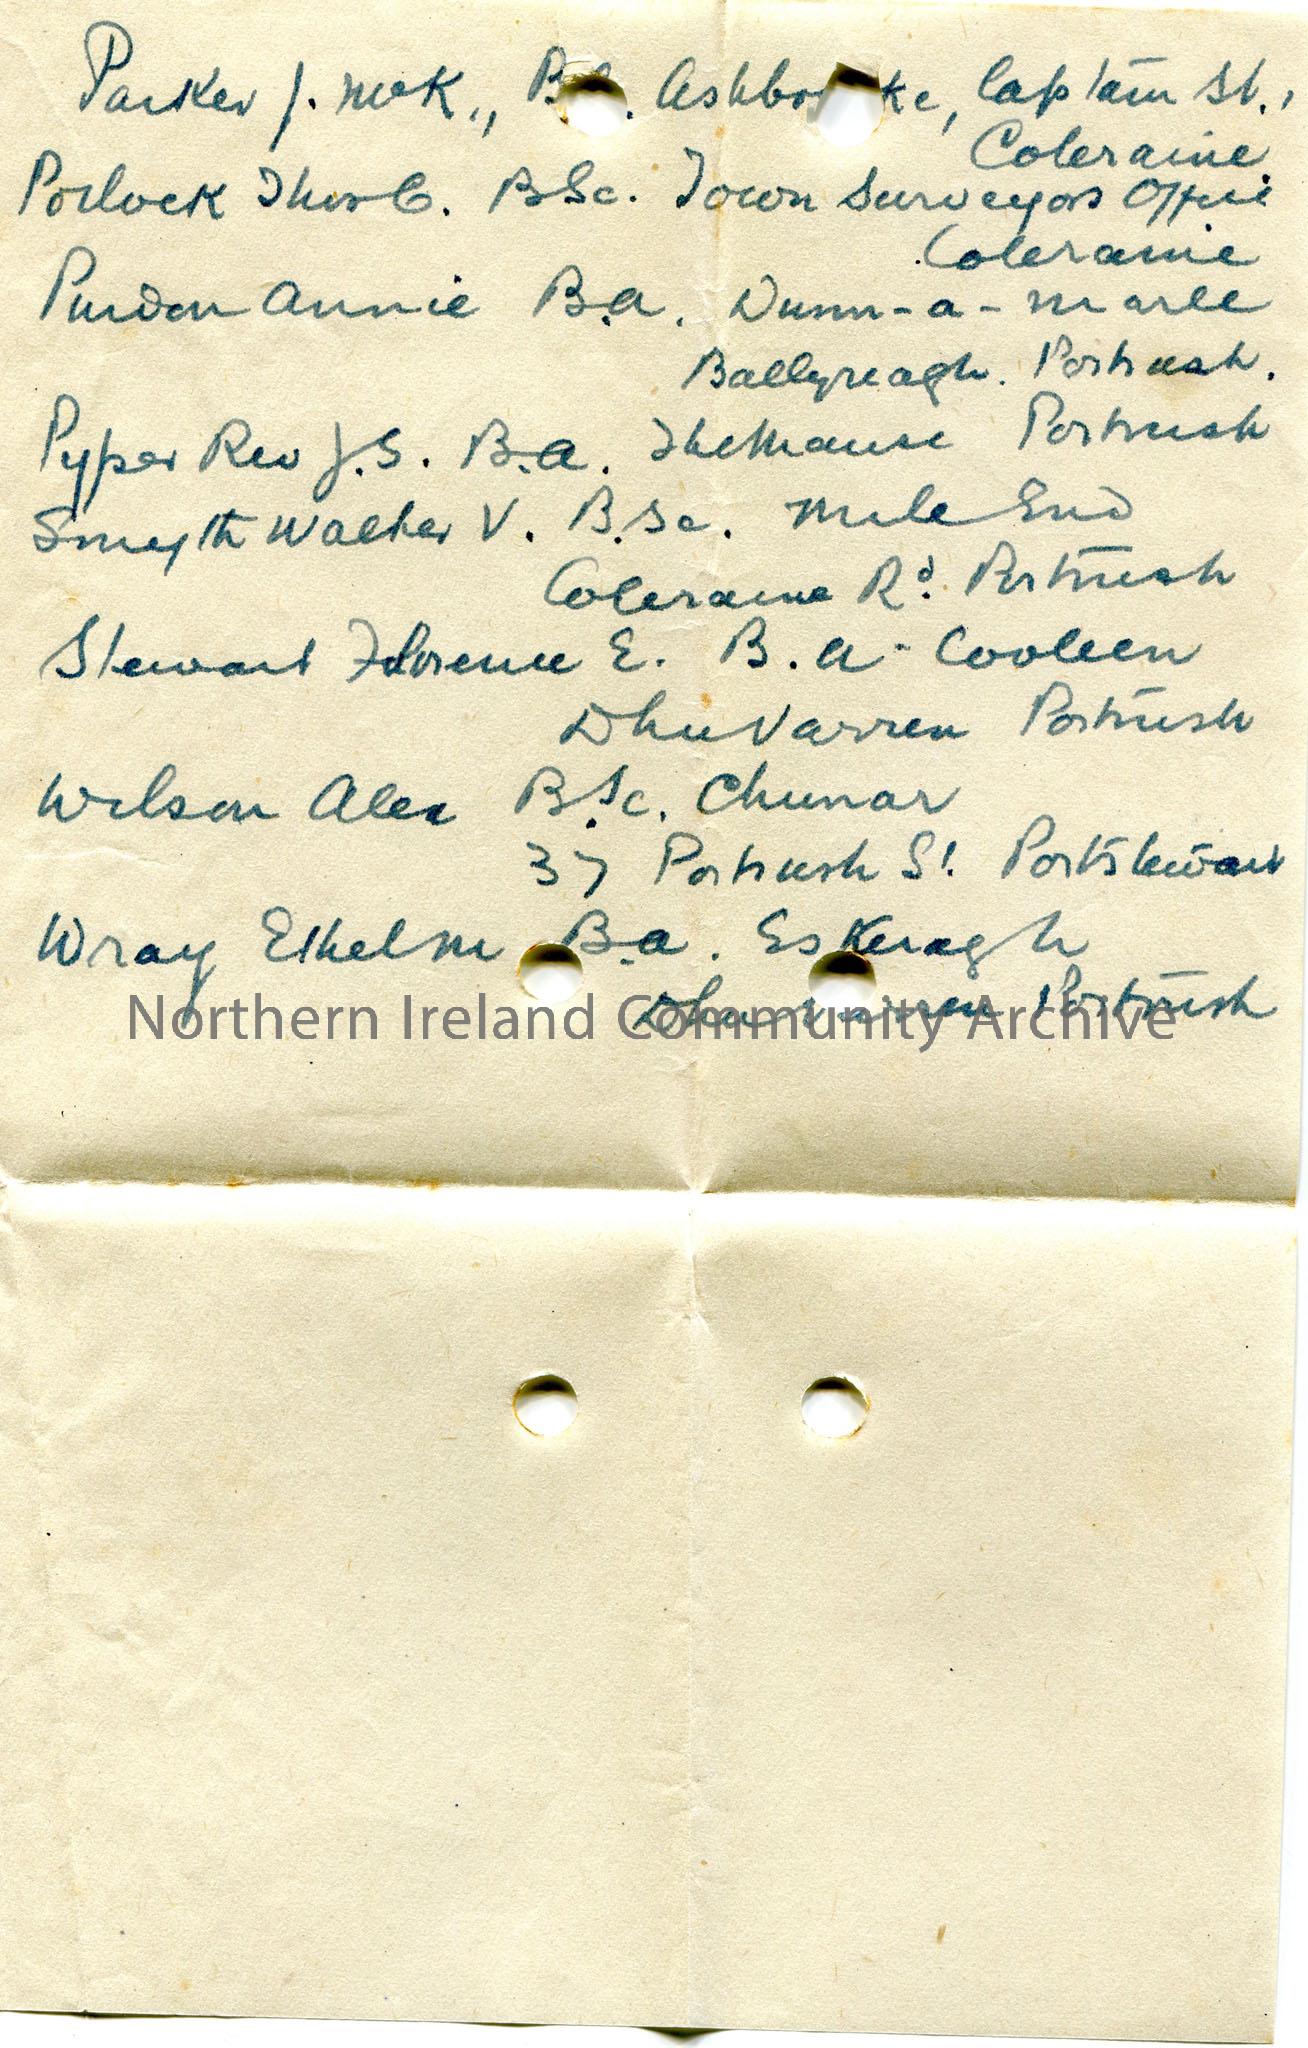 Parker J. McK., B. Ashbrooke, Captain St.,
Coleraine.
Pollock Thos C. BSc. Town Surveyors Office
Coleraine
Purdon Annie B.A. Dunn-a-marle
Ballyreagh. Portrush.
Pyper Rev J.S. B.A. The Manse Portrush
Smyth Walter V. B.Sc. Mile End
Coleraine Rd. Portrush
Stewart Florence E. B.A. Cooleen
Dhu Varren Portrush
Wilson Alex B.Sc. Chunar
37 Portrush St. Portstewart
Wray Ethel M B.A. Eskeragh
Dhu Varren Portrush
Northern Ireland Community Archive